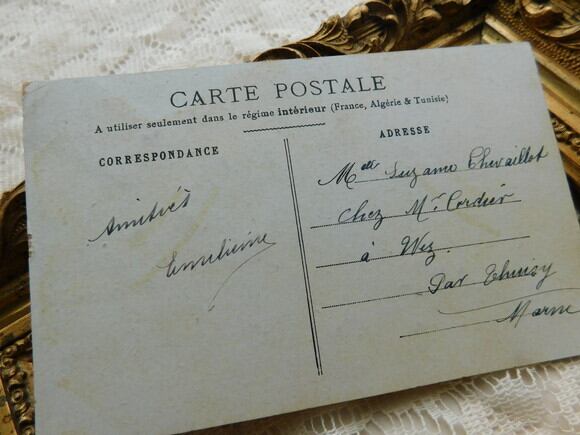 CARTE POSTALE
A utiliser seulement dans le régime intérieur (France, Algérie & Tunisie)
CORRESPONDANCE
ADRESSE
Amitiés
Emilienne
Melle Suzanne Chevaillot
Chez Mr Cordier
à Wez
Par Thuizy
Marne